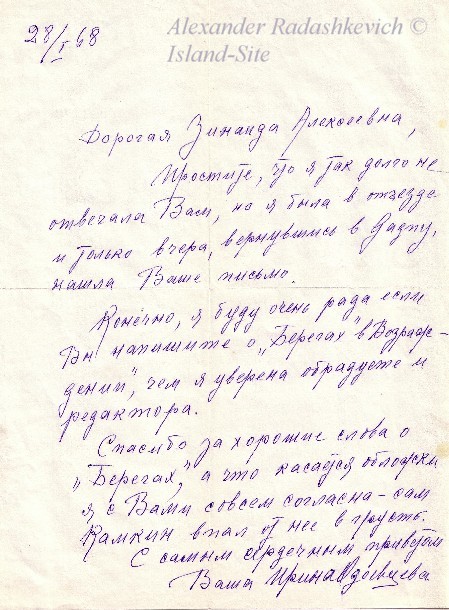 Alexander Radashkevich ©
Island-Site
28/I 68
Дорогая Зинаида Алексеевна,
Простите, что я так долго не
отвечала Вам, но я была в отъезде
и только вчера, вернувшись в
нашла Ваше письмо.
Конечно, я буду очень рада если
Вы напишите о „Берегах" в Возрож-
дении", чем я уверена обрадуете и
редактора.
Спасибо за хорошие слова о
„Берегах", а что касается обложки
я с Вами совсем согласна - сам
Камкин впал от нее в грусть.
С самым сердечным приветом
Ваша Ирина Одоевцева